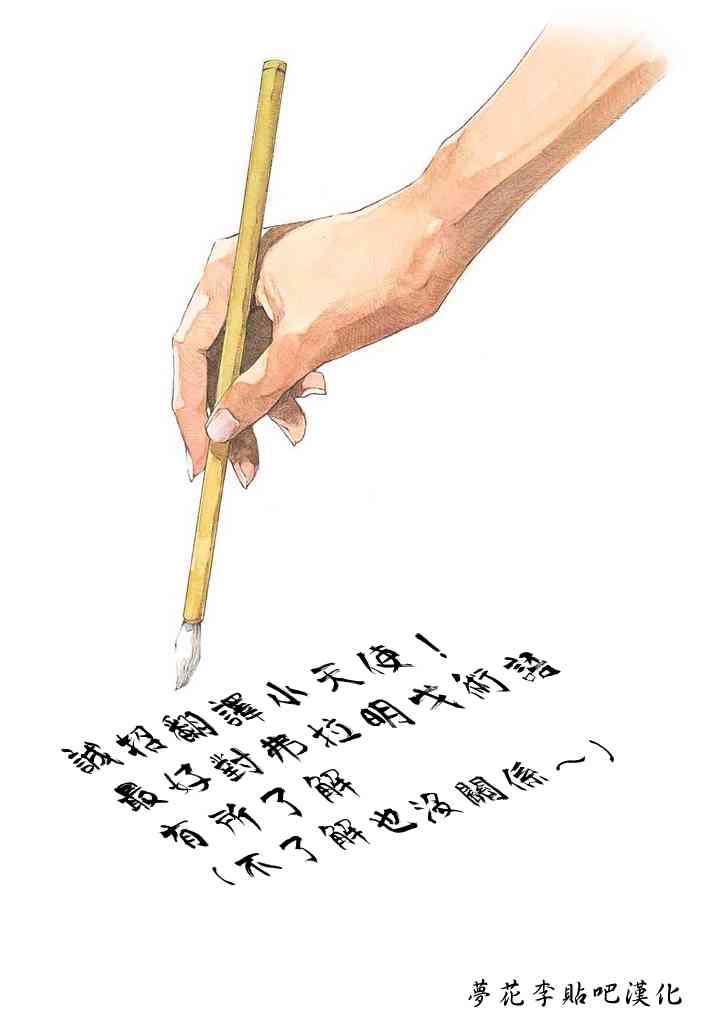 誠招翻譯小天使！
最好對弗拉明戈術語
有所了解
（不了解也沒關係～）
夢花李貼吧漢化